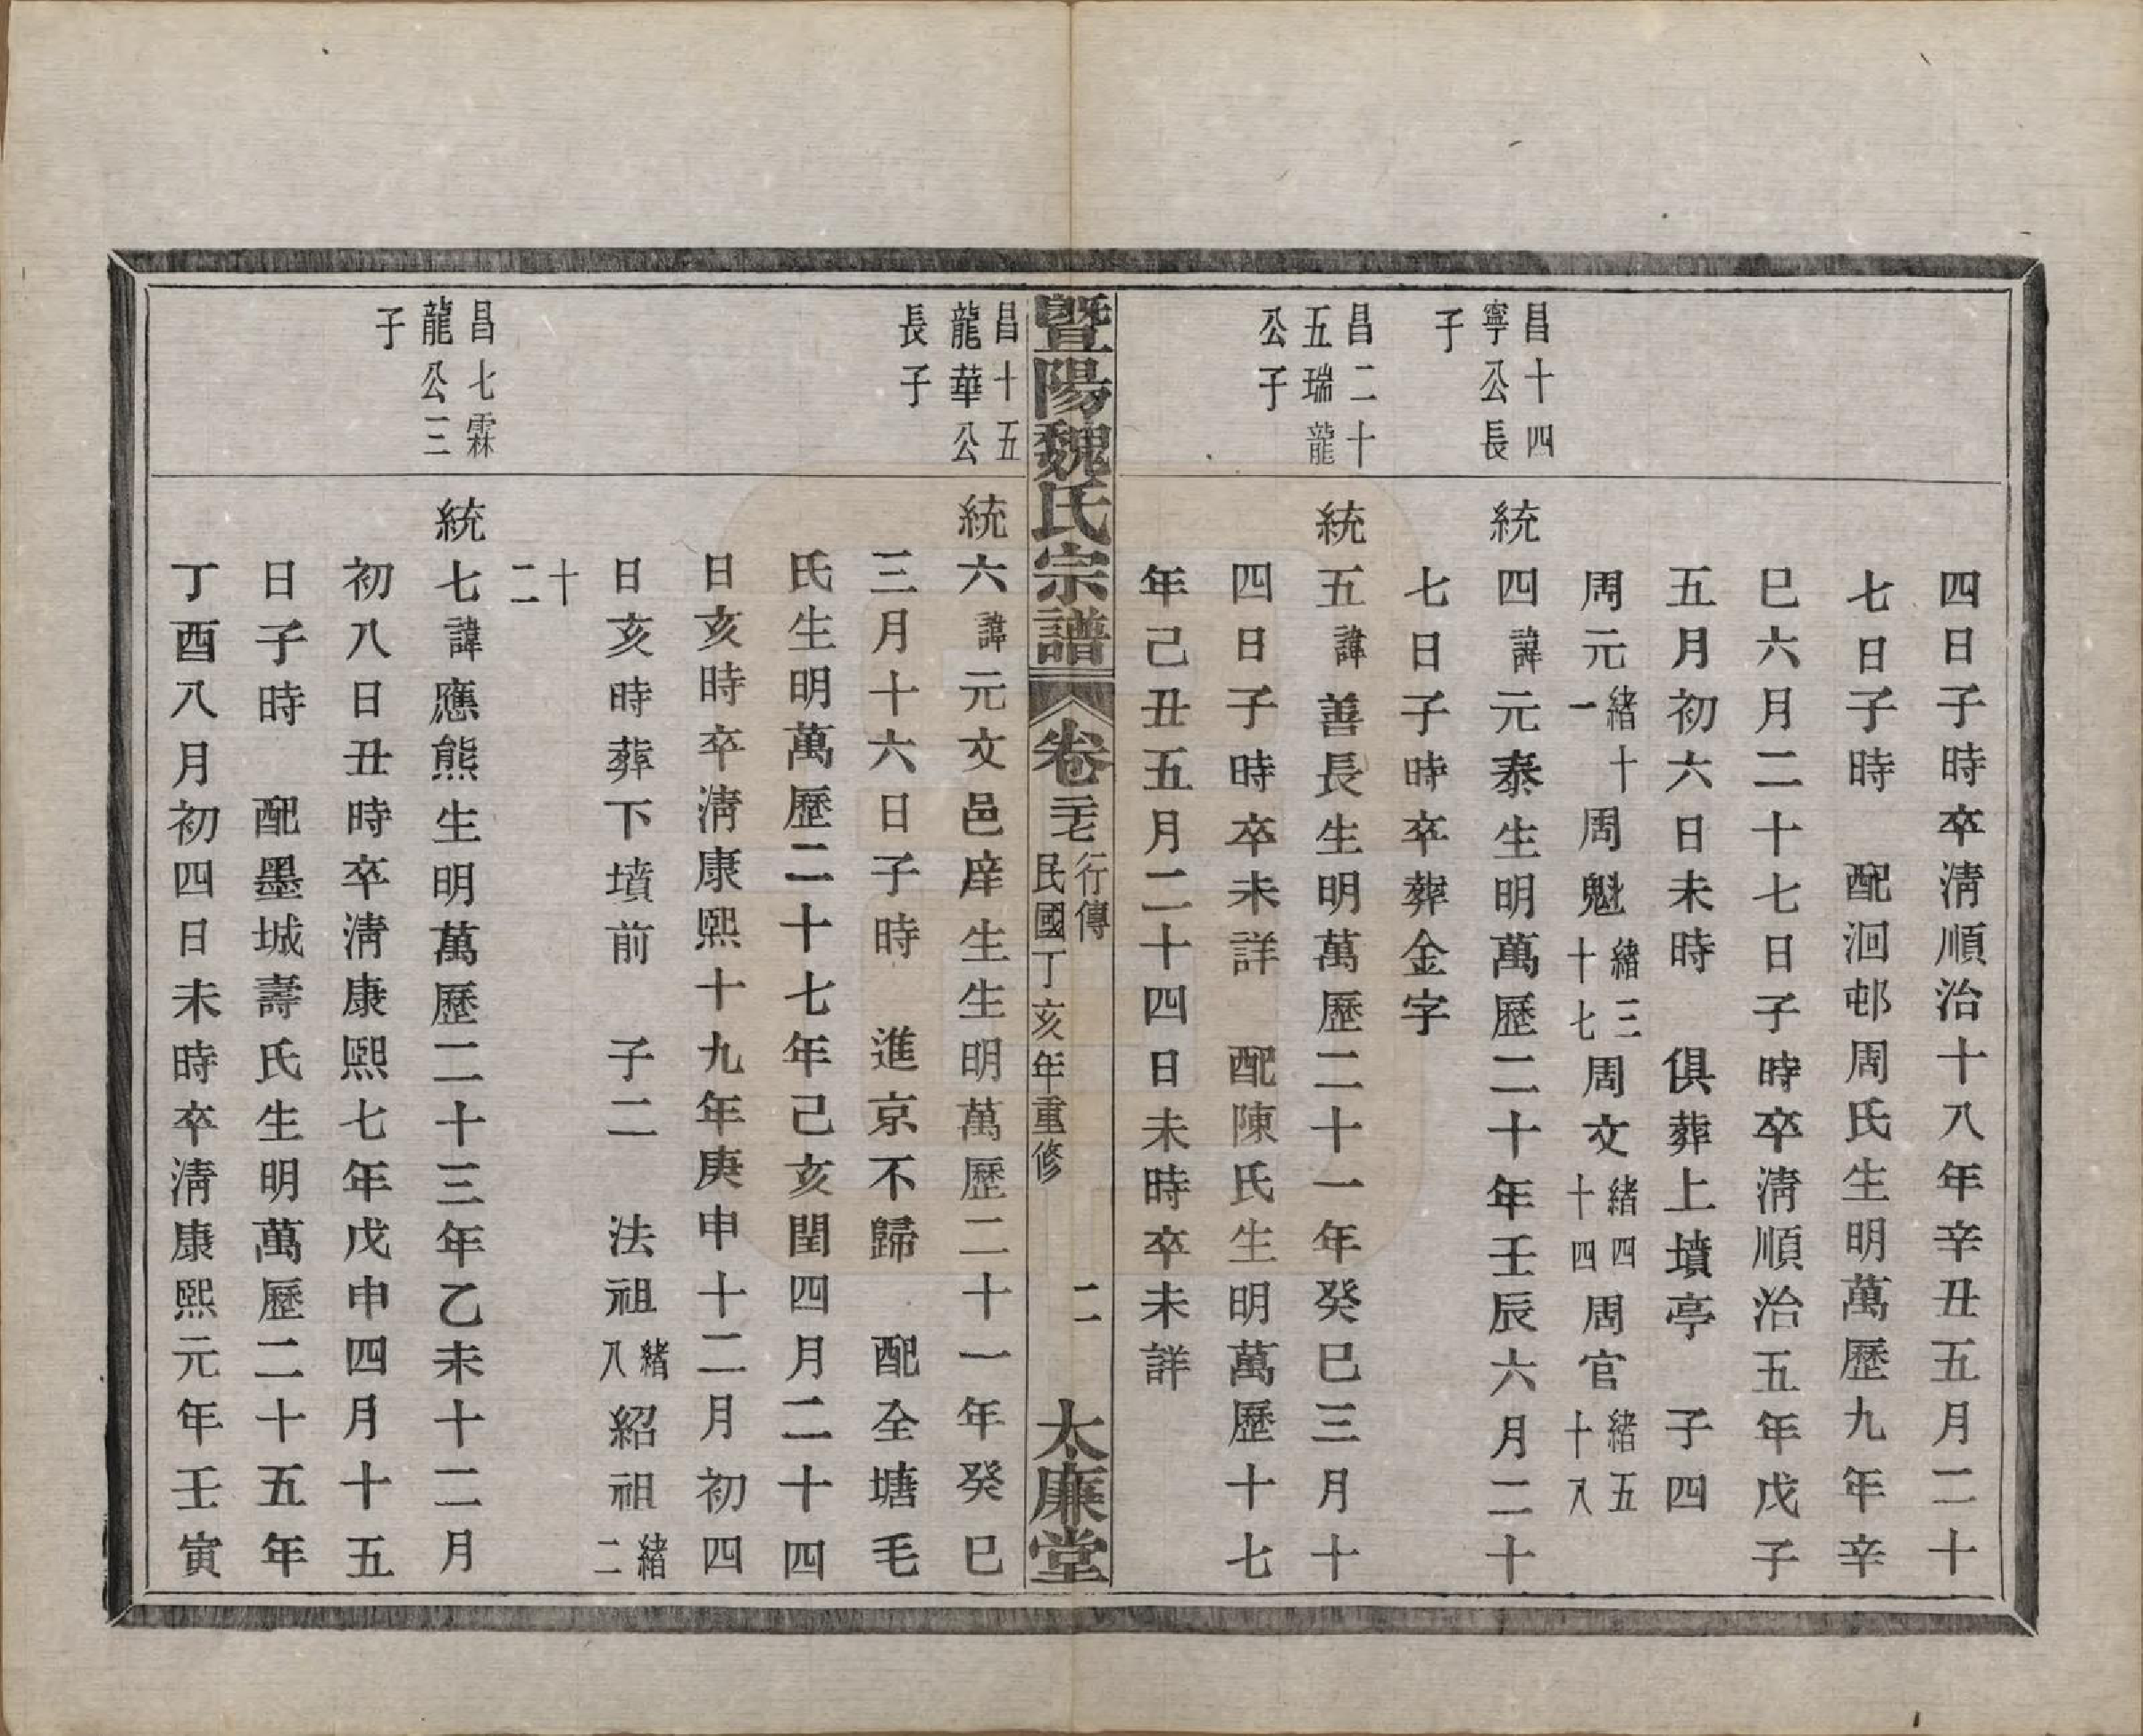 四日子時卒淸順治十八年辛丑五月二十
七日子時　配洄邨周氏生明萬歷九年辛
巳六月二十七日子時卒淸順治五年戊子
五月初六日未時　俱葬上墳亭　子四
周元緒十一周魁緒三十七周文緒四十四周官緒五十八
昌十四寧公長子
統四諱元泰生明萬歷二十年壬辰六月二十
七日子時卒葬金字
昌二十五瑞龍公子
統五諱善長生明萬歷二十一年癸巳三月十
四日子時卒未詳　配陳氏生明萬歷十七
年己丑五月二十四日未時卒未詳
暨陽魏氏宗譜　卷二十七　行傳　民國丁亥年重修　二　太廉堂
昌十五龍華公長子
統六諱元文邑庠生生明萬歷二十一年癸巳
三月十六日子時　進京不歸　配全塘毛
氏生明萬歷二十七年己亥閏四月二十四
日亥時卒淸康熙十九年庚申十二月初四
日亥時葬下墳前　子二　法祖緒八紹祖緒二
十二
昌七霖龍公三子
統七諱應熊生明萬歷二十三年乙未十二月
初八日丑時卒淸康熙七年戊申四月十五
日子時　配墨城壽氏生明萬歷二十五年
丁酉八月初四日未時卒淸康熙元年壬寅